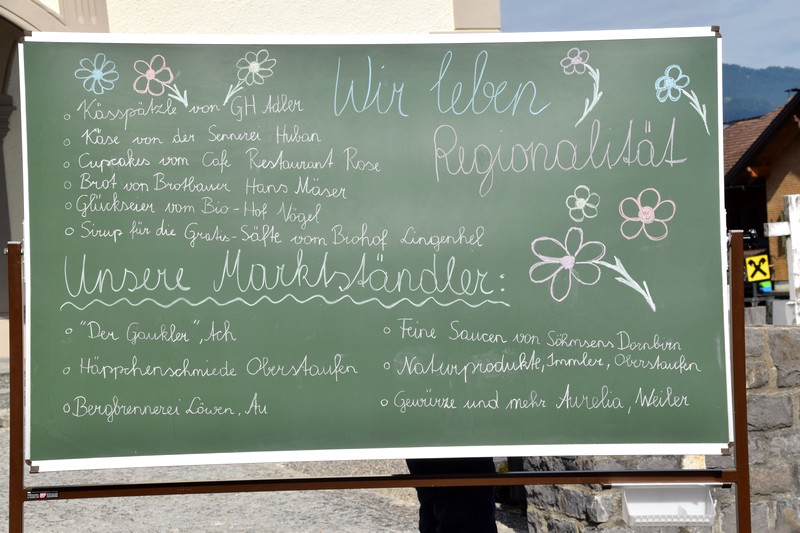 Wir leben
Regionalität
Kässpätzle von GH Adler
Käse von der Sennerei Huban
Cupcakes vom Cafe Restaurant Rose
Brot von Brotbauer Hans Mäser
Glückseier vom Bio-Hof Vögel
Sirup für die Gratis-Säfte vom Biohof Lingenhel
Unsere Marktständler:
"Der Gaukler", Ach
Häppchenschmiede Oberstaufen
Bergbrennerei Löwen, Au
Feine Saucen von Söhmsens Dornbirn
Naturprodukte, Immler, Oberstaufen
Gewürze und mehr Aurelia, Weiler